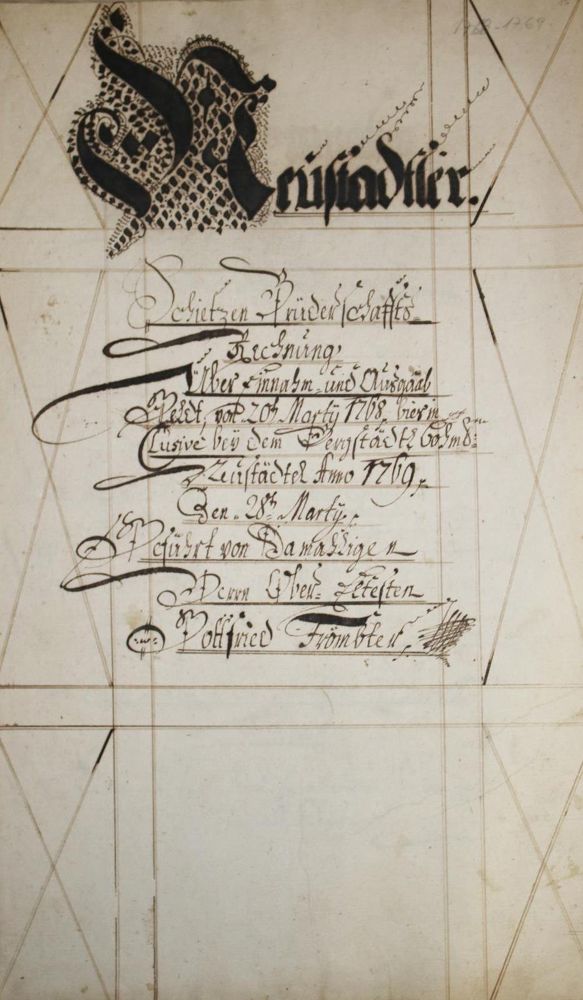 1768-1769
Neüstädtler.
Schietzen Brüderschaffts
Rechnung
Über Einnahm= und Ausgaab
Geldt, von 20th Marty 1768, hier in
Clusive bey dem Bergstädtl Böhm=
Neüstädtel Anno 1769,
Den 28th Marty.
Geführt von Damahligen
Herrn Ober= Eltesten
Gottfried Frömbter